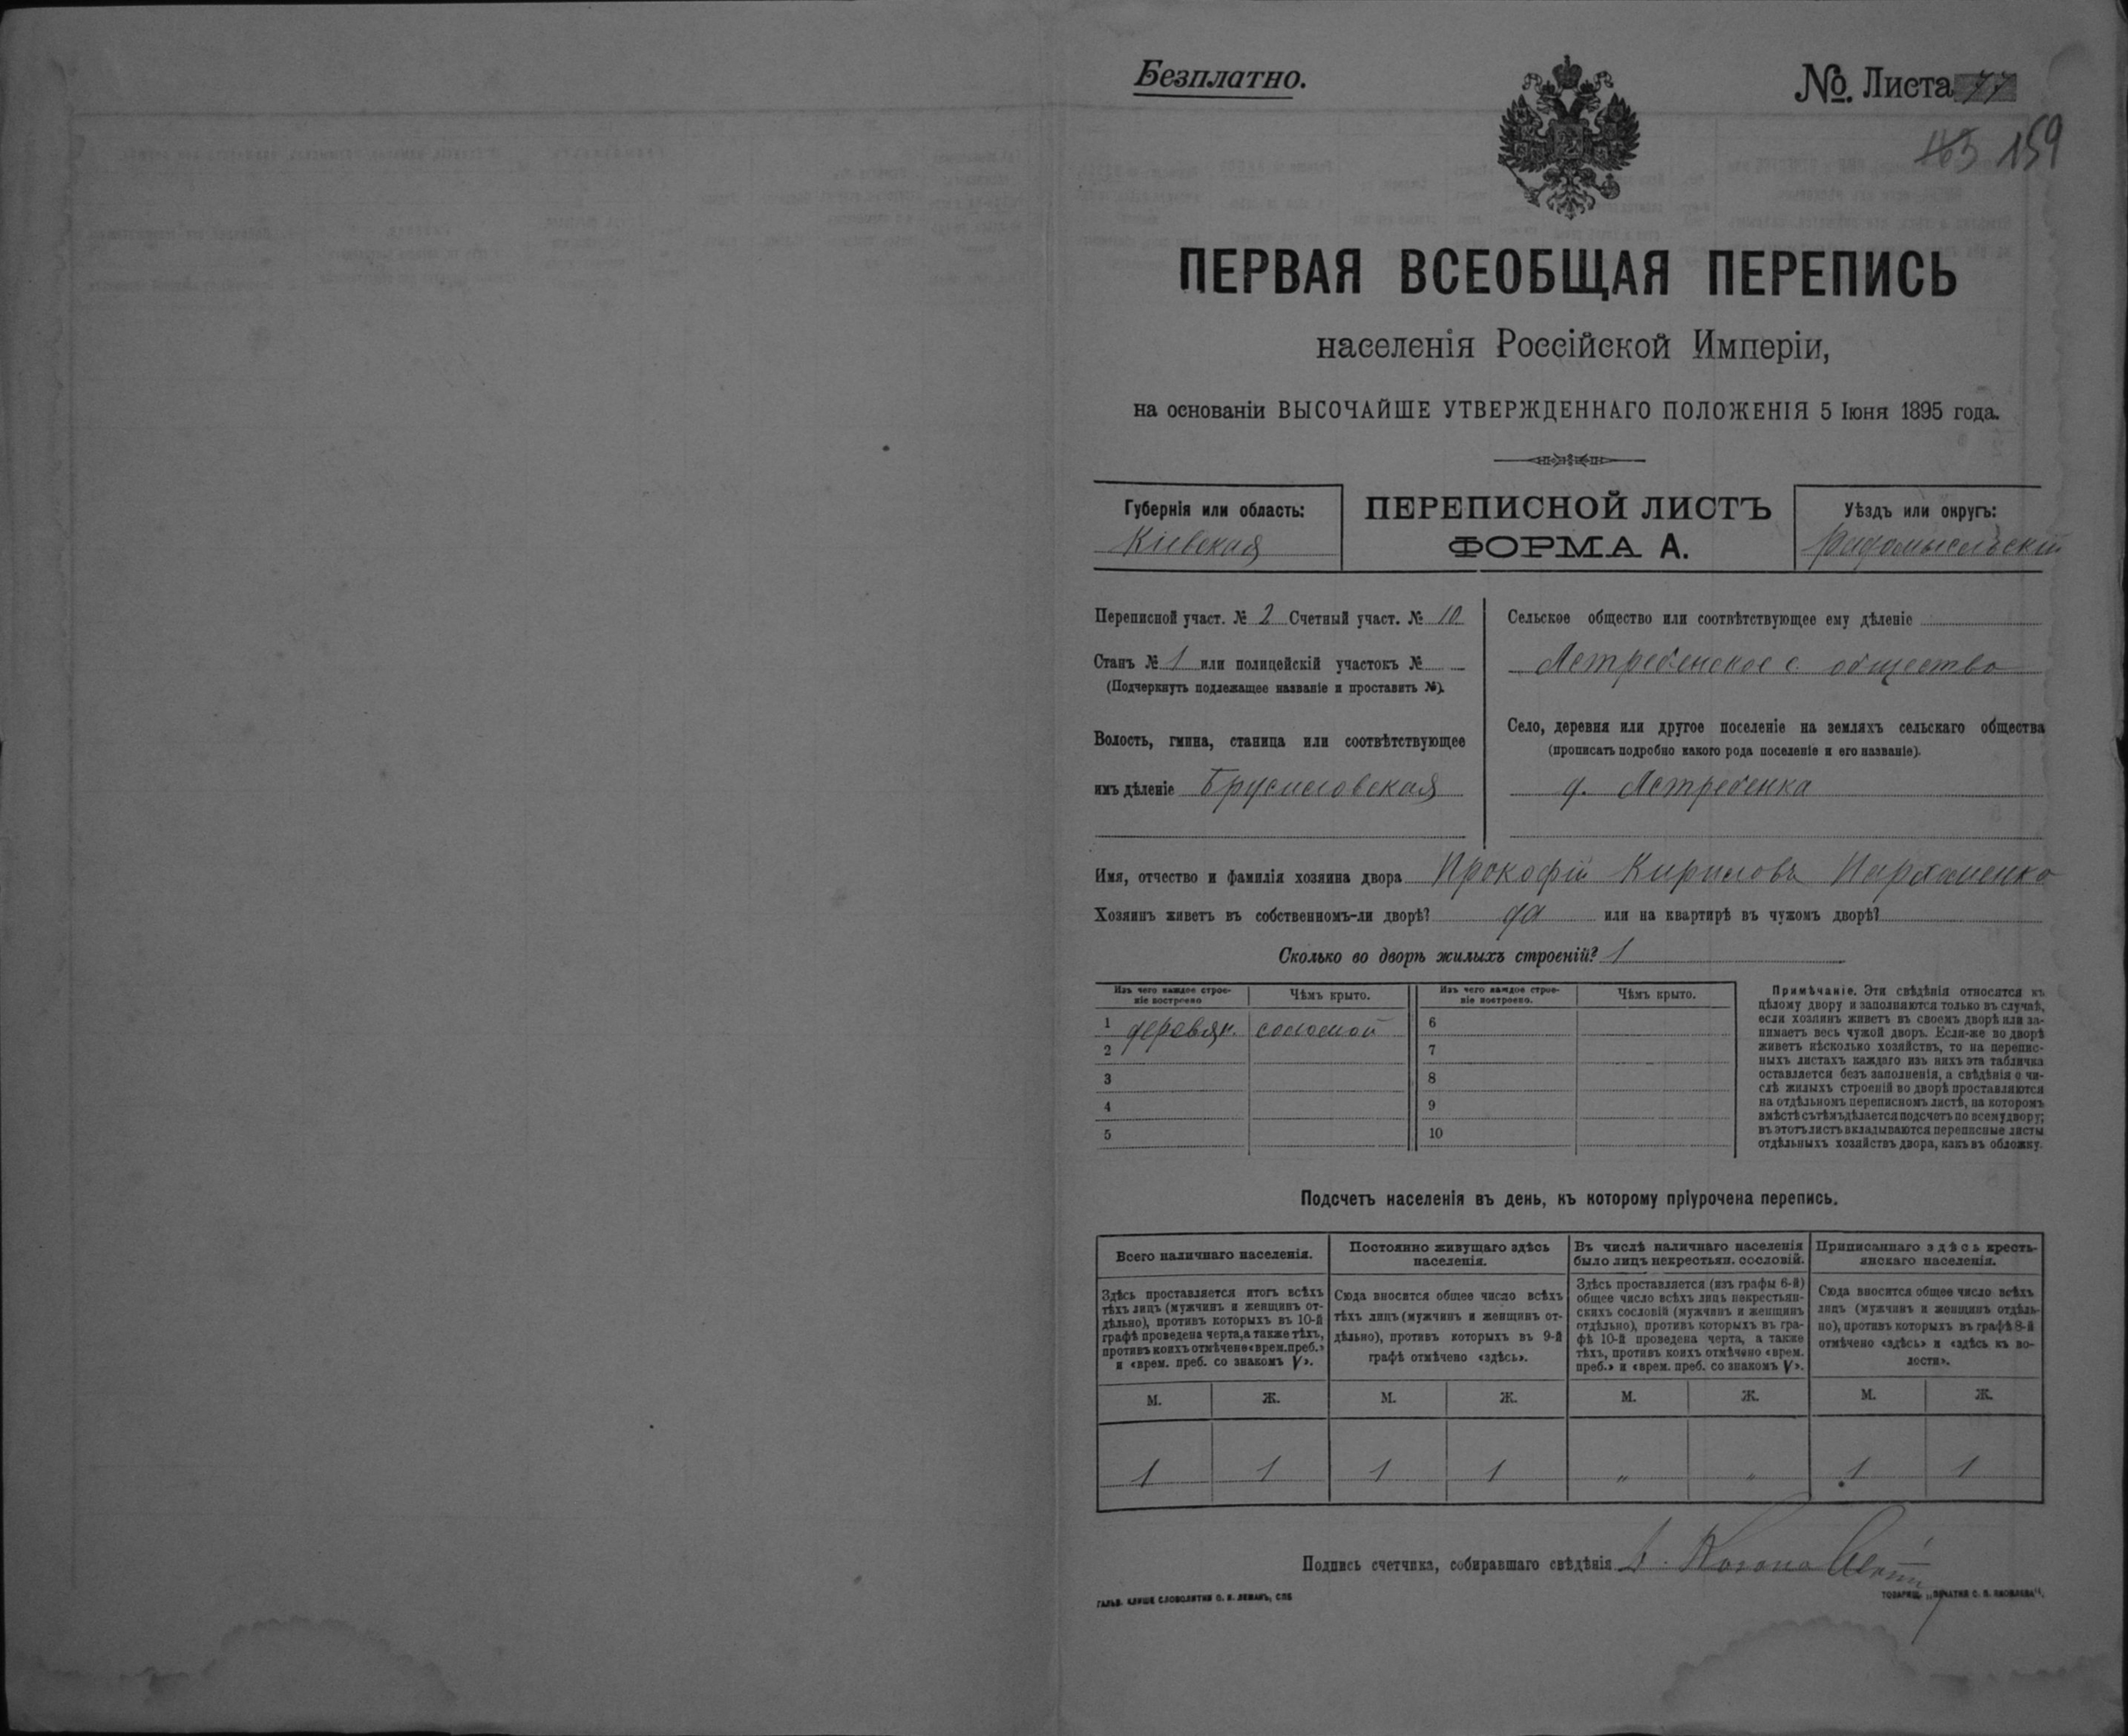 Безплатно.
№. Листа 77
163 159
ПЕРВАЯ ВСЕОБЩАЯ ПЕРЕПИСЬ
населенія Россійской Имперіи,
на основаніи ВЫСОЧАЙШЕ УТВЕРЖДЕННАГО ПОЛОЖЕНІЯ 5 Іюня 1895 года.
Губернія или область:
Кіевская
ПЕРЕПИСНОЙ ЛИСТЪ
ФОРМА А.
Уѣздъ или округъ:
Радомысльскій
Переписной участ. № 2 Счетный участ. № 10
Станъ № 1 или полицейскій участокъ №
(Подчеркнуть подлежащее названіе и проставить №).
Волость, гмина, станица или соотвѣтствующее
имъ дѣленіе Брусиловская
Сельское общество или соотвѣтствующее ему дѣленіе
Ястребенское с. общество
Село, деревня или другое поселеніе на земляхъ сельскаго общества
(прописать подробно какого рода поселеніе и его названіе).
д. Ястребенка
Имя, отчество и фамилія хозяина двора Прокофій Кириловъ Пархоменко
Хозяинъ живетъ въ собственномъ-ли дворѣ? да или на квартирѣ въ чужомъ дворѣ?
Сколько во дворѣ жилыхъ строеній? 1
Изъ чего каждое строе-
ніе построено
Чѣмъ крыто.
Изъ чего каждое строе-
ніе построено.
Чѣмъ крыто.
1 деревян. соломой 6
2 7
3 8
4 9
5 10
Примѣчаніе. Эти свѣдѣнія относятся къ
цѣлому двору и заполняются только въ случаѣ,
если хозяинъ живетъ въ своемъ дворѣ или за-
нимаетъ весь чужой дворъ. Если-же во дворѣ
живетъ нѣсколько хозяйствъ, то на перепис-
ныхъ листахъ каждаго изъ нихъ эта табличка
оставляется безъ заполненія, а свѣдѣнія о чи-
слѣ жилыхъ строеній во дворѣ проставляются
на отдѣльномъ переписномъ листѣ, на которомъ
вмѣстѣ съ тѣмъ дѣлается подсчетъ по всему двору;
въ этотъ листъ вкладываются переписные листы
отдѣльныхъ хозяйствъ двора, какъ въ обложку.
Подсчетъ населенія въ день, къ которому пріурочена перепись.
Всего наличнаго населенія.
Здѣсь проставляется итогъ всѣхъ
тѣхъ лицъ (мужчинъ и женщинъ от-
дѣльно), противъ которыхъ въ 10-й
графѣ проведена черта, а также тѣхъ,
противъ коихъ отмѣчено «врем. преб.»
и «врем. преб. со знакомъ V».
Постоянно живущаго здѣсь
населенія.
Сюда вносится общее число всѣхъ
тѣхъ лицъ (мужчинъ и женщинъ от-
дѣльно), противъ которыхъ въ 9-й
графѣ отмѣчено «здѣсь».
Въ числѣ наличнаго населенія
было лицъ некрестьян. сословій.
Здѣсь проставляется (изъ графы 6-й)
общее число всѣхъ лицъ некрестьян-
скихъ сословій (мужчинъ и женщинъ
отдѣльно), противъ которыхъ въ гра-
фѣ 10-й проведена черта, а также
тѣхъ, противъ коихъ отмѣчено «врем.
преб.» и «врем. преб. со знакомъ V».
Приписаннаго здѣсь кресть-
янскаго населенія.
Сюда вносится общее число всѣхъ
лицъ (мужчинъ и женщинъ отдѣль-
но), противъ которыхъ въ графѣ 8-й
отмѣчено «здѣсь» и «здѣсь къ во-
лости».
М. Ж. М. Ж. М. Ж. М. Ж.
1 1 1 1 " " 1 1
Подпись счетчика, собиравшаго свѣдѣнія
ГАЛЬВ. КЛИШЕ СЛОВОЛИТНИ О. И. ЛЕМАНЪ, СПБ
ТОВАРИЩ. „ПЕЧАТНЯ С. П. ЯКОВЛЕВА“.